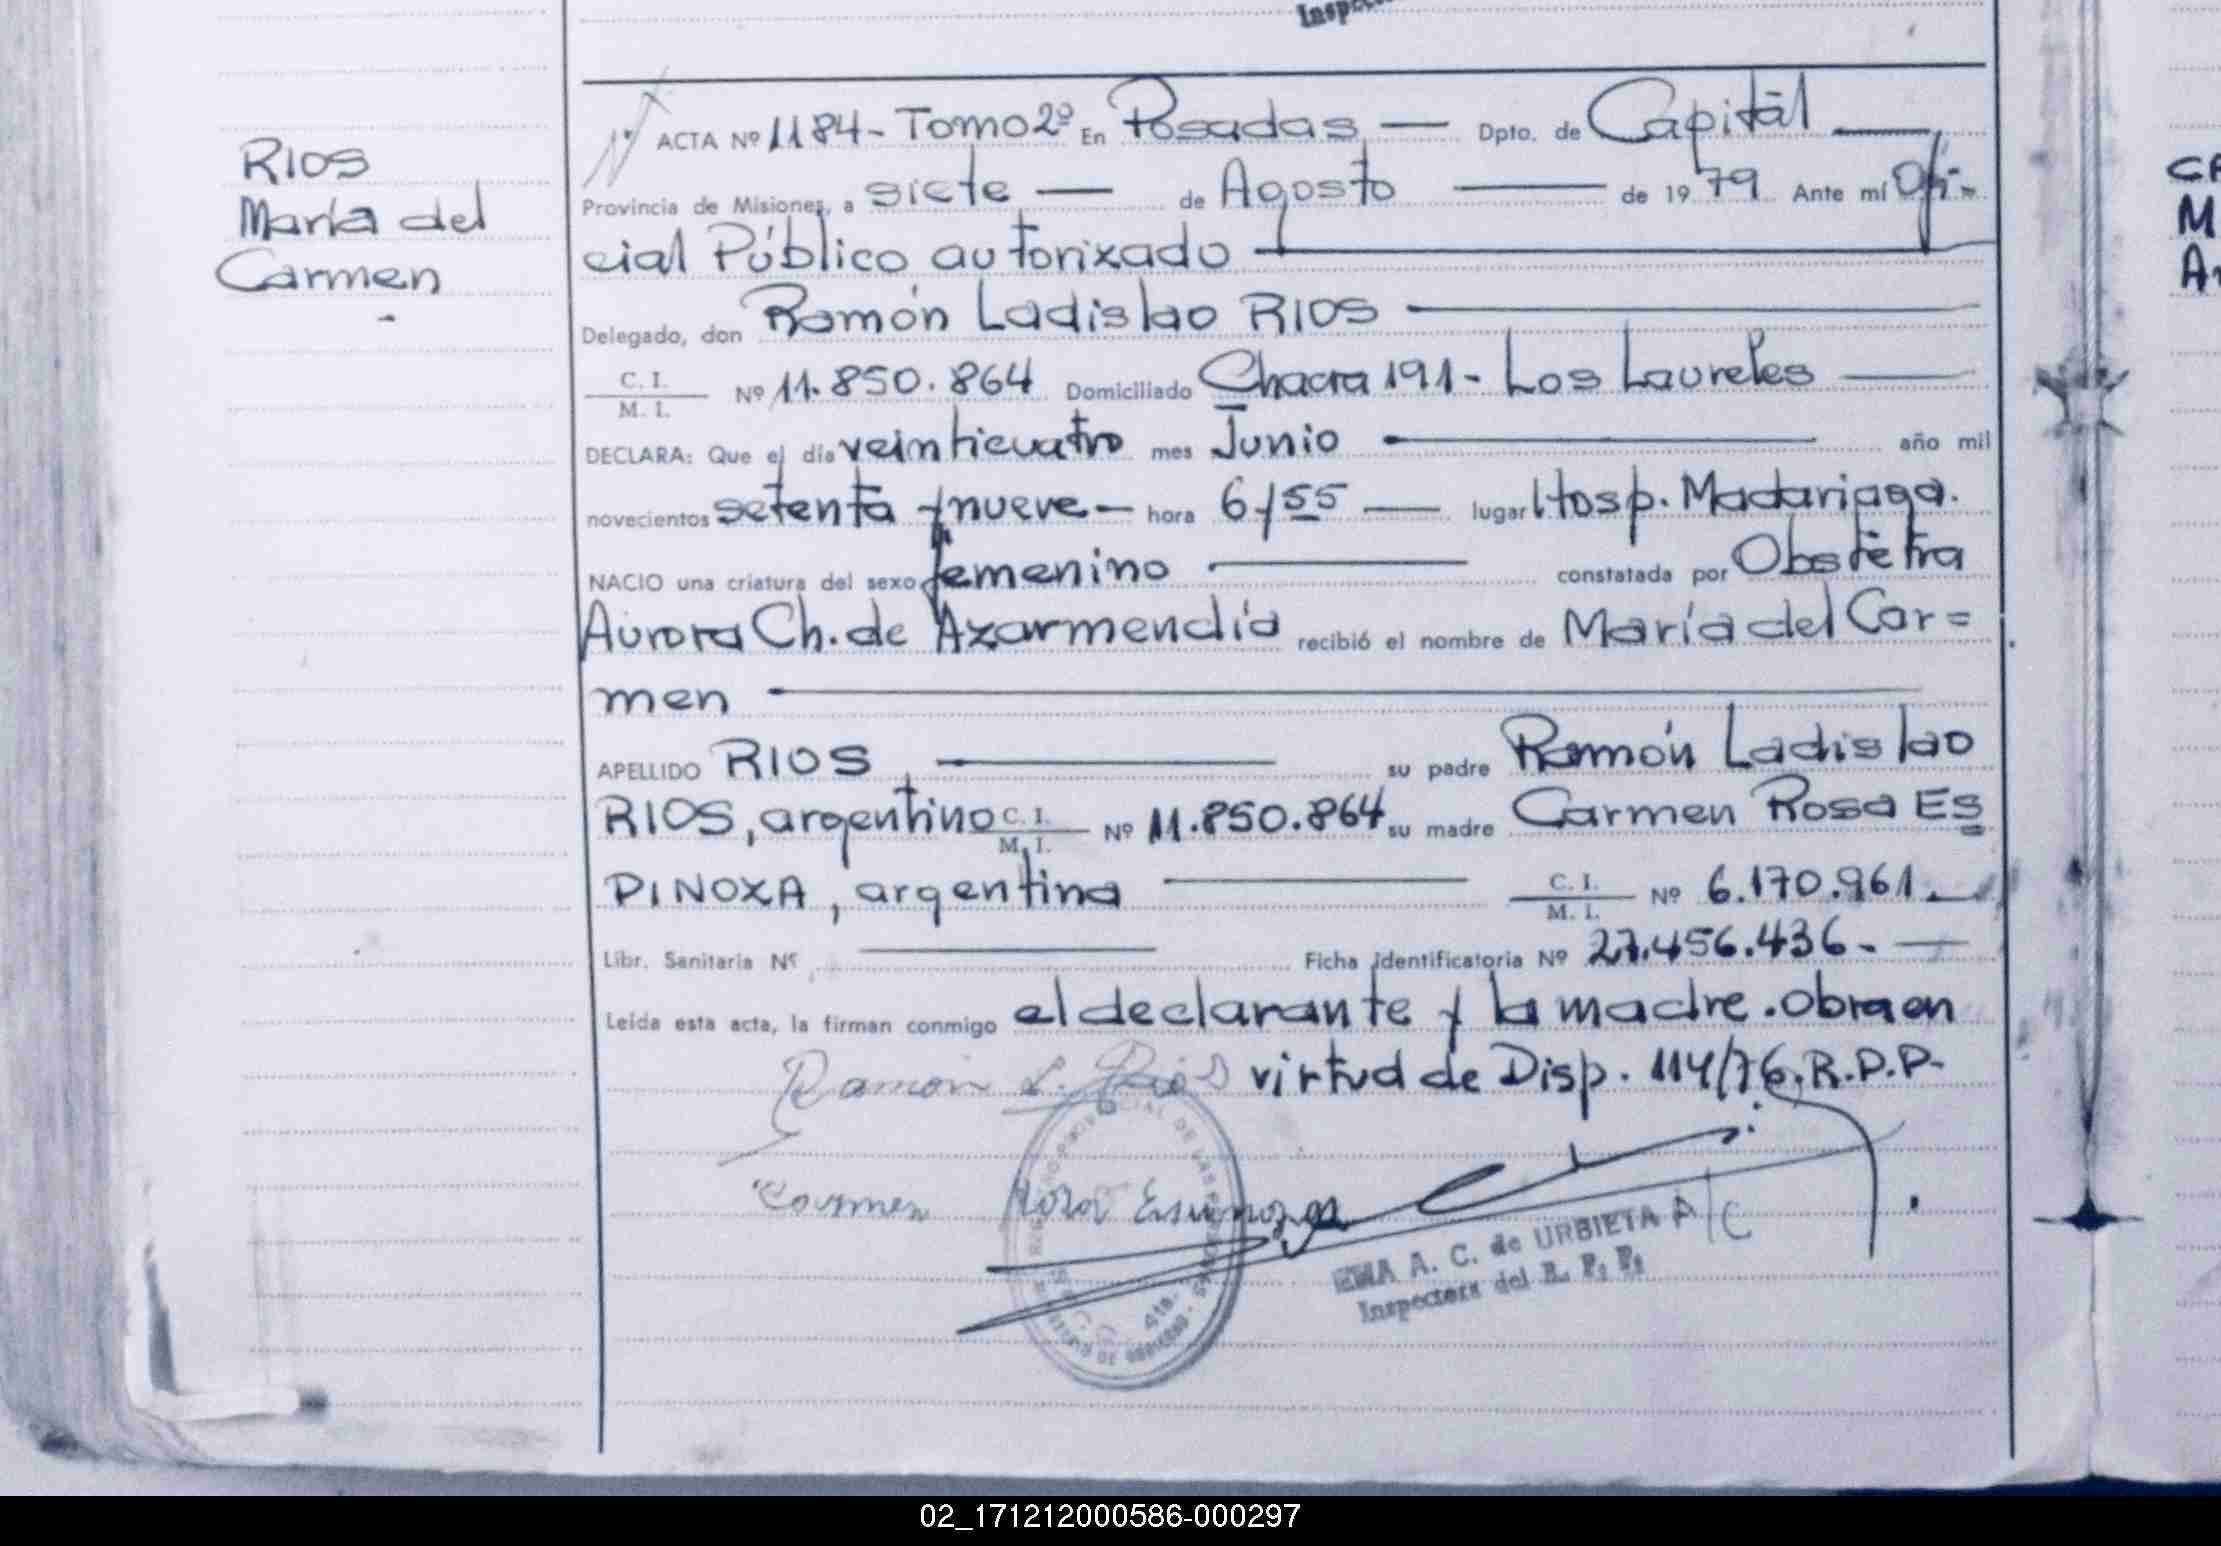 Inspec
RIOS
María del
Carmen
-
ACTA Nº 1184- Tomo 2º En Posadas — Dpto. de Capital —
Provincia de Misiones, a siete — de Agosto — de 1979 Ante mí Ofi-
cial Público autorixado —
Delegado, don Ramón Ladislao RIOS —
C. I.
M. I. Nº 11.850.864 Domiciliado Chacra 191- Los Laureles —
DECLARA: Que el día veinticuatro mes Junio — año mil
novecientos setenta y nueve — hora 6/55 — lugar Hosp. Madariaga.
NACIO una criatura del sexo femenino — constatada por Obstetra
Aurora Ch. de Axarmendia recibió el nombre de María del Car=
men —
APELLIDO RIOS — su padre Ramón Ladislao
RIOS, argentino C. I.
M. I. Nº 11.850.864 su madre Carmen Rosa Es
PINOXA, argentina — C. I.
M. I. Nº 6.170.961.—
Libr. Sanitaria Nº — Ficha Identificatoria Nº 27.456.436.—
Leída esta acta, la firman conmigo el declarante y la madre. Obra en
virtud de Disp. 114/76. R.P.P-
Ramon L. Rios
Carmen Rosa Espinoza
A. C. de URBIETA A/C
Inspectora del R. P. P.
02_171212000586-000297